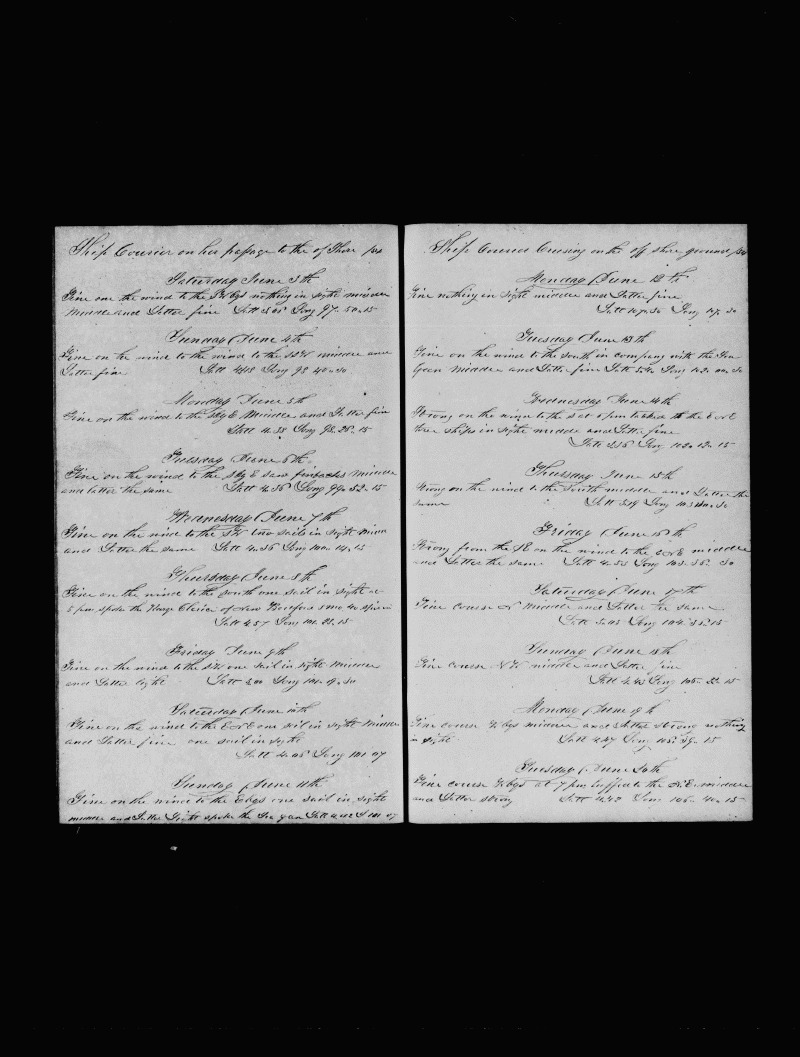 Ship Courier on her passage to the of Shore
Saturday June 3th
Fine on the wind to the nothing in sight middle
Middle and Latter fine Latt Long 97. 50. 15
Sunday June 4th
Fine on he wind to the wind to the SSW middle and
Latter fine Latt 4.18 Long 98. 40. 30
Monday June 5th
Fine on the wind to the Middle and Latter fine
Latt 4. 38 Long 98. 26. 15
Tuesday June 6th
Fine on the wind to the saw finbacks middle
and latter the same Latt 4. 36 Long 99. 52. 15
Wednesday June 7th
Fine on the wind to the SW two sails in sight
and Latter the same Latt 4. 36 Long 100. 14. 15
Thursday June 8th
Fine on the wind to the South one sail in sight at
5 pm spoke the of New
Latt 4.57 Long 101. 02. 15
Friday June 9th
Fine on the wind to the SW one sail in sight middle
and Latter light Latt Long 101. 9. 30
Saturday June 10th
Fine on the wind to the ENE one sail in sight middle
and Latter fine one sail in sight
Latt 4. 06 Long 101 07
Sunday June 11th
Fine on the wind to the one sail in sight
middle and Latter Light spoke the Sea gull Latt 101 07
Ship Courier Cruising on the off shore ground
Monday June 12th
Fine nothing in sight middle and Latter fine
Latt Long
Tuesday June 13th
Fine on the wind to the South in company with the Sea
Middle and Latter fine Latt Long 102. 30
Wednesday June 14th
Strong on the wind to the S at 6 pm tacked to the ENE
three ships in sight middle and Latter fine
Latt Long 102. 12. 15
Thursday June 15th
Strong on the wind to the South middle and Latter the
same Latt 5.19 Long
Friday June 16th
Strong from the SE on the wind to the ENE middle
and Latter the same Latt 4.53 Long 103. 35. 30
Saturday June 17th
Fine course N middle and Latter the same
Latt 5.03 Long 104. 35. 15
Sunday June 18th
Fine course NW middle and Latter fine
Latt Long 105. 22. 15
Monday June 19th
Fine course middle and Latter strong nothing
in sight Latt Long 105. 39. 15
Tuesday June 20th
Fine course at 7 pm luffed to the NE middle
and Latter strong Latt 4.42 Long 106. 40. 15